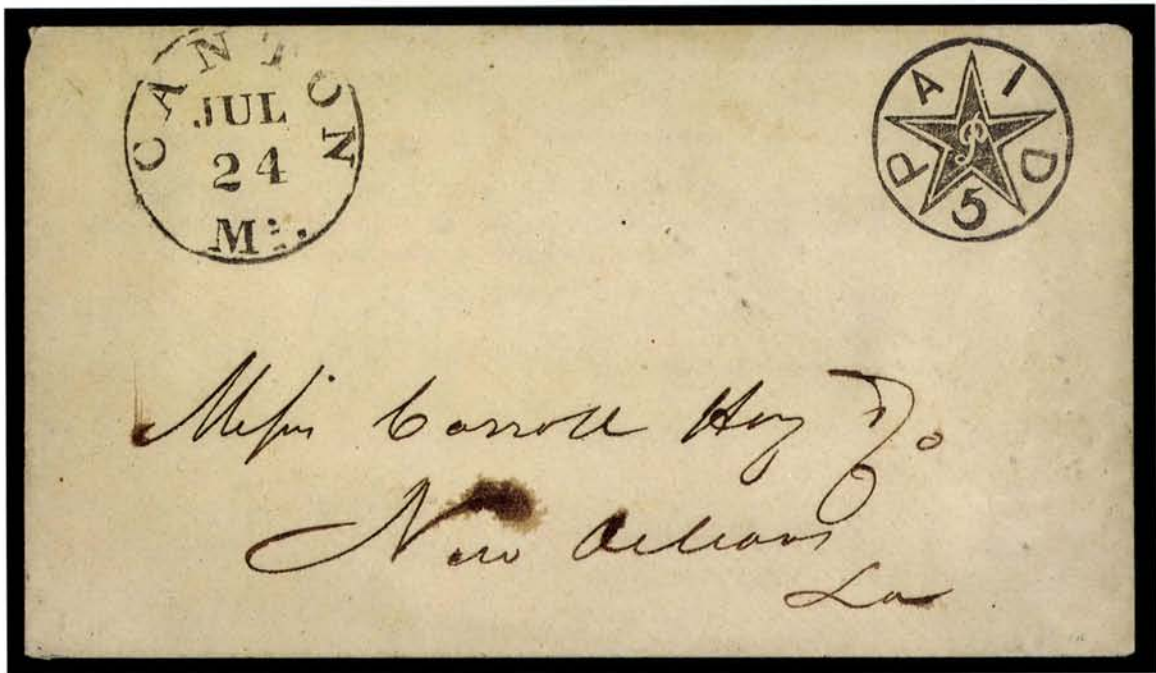 CANTON
JUL
24
Mi.
PAID
P
5
Messrs Carroll Hoy & Co
New Orleans
La